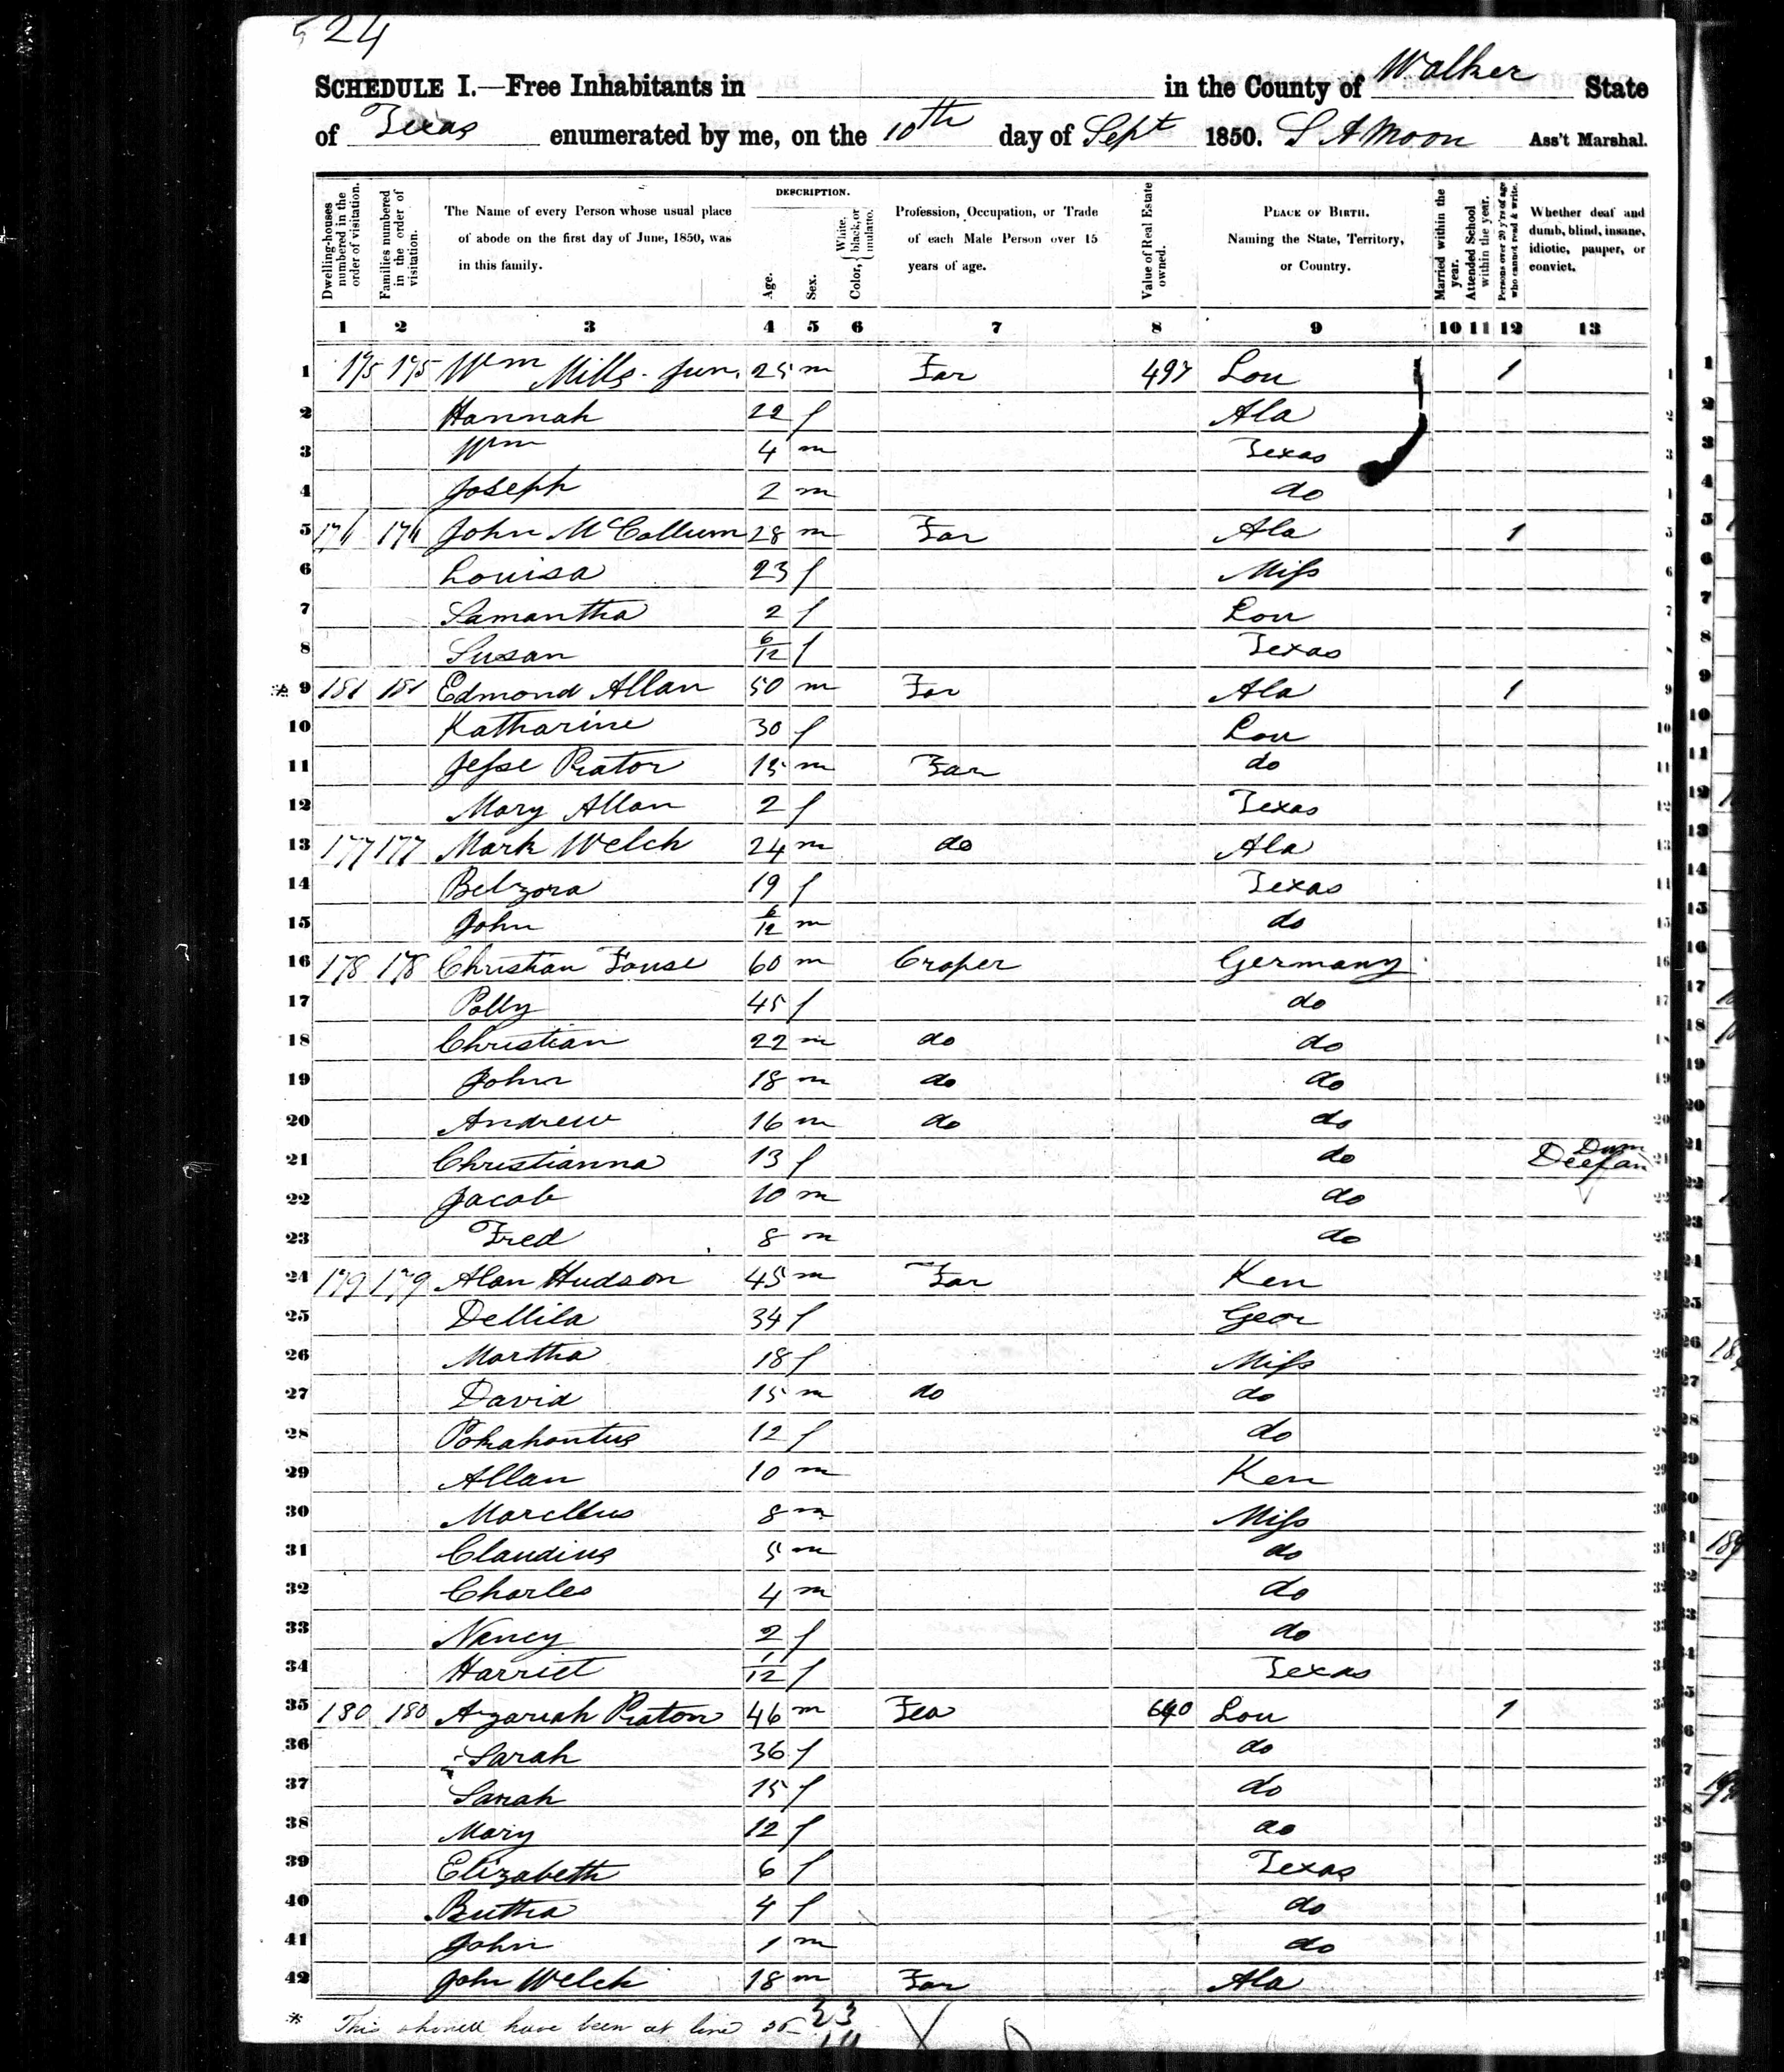 524
SCHEDULE I.—Free Inhabitants in in the County of Walker State
of Texas enumerated by me, on the 10th day of Sept 1850. S A Moon Ass't Marshal.
Dwelling-houses numbered in the order of visitation.
Families numbered in the order of visitation.
The Name of every Person whose usual place of abode on the first day of June, 1850, was in this family.
DESCRIPTION.
Age.
Sex.
Color, White, black, or mulatto.
Profession, Occupation, or Trade of each Male Person over 15 years of age.
Value of Real Estate owned.
PLACE OF BIRTH. Naming the State, Territory, or Country.
Married within the year.
Attended School within the year.
Persons over 20 y'rs of age who cannot read & write.
Whether deaf and dumb, blind, insane, idiotic, pauper, or convict.
1 2 3 4 5 6 7 8 9 10 11 12 13
1 175 175 Wm Mills Jun. 25 m Far 497 Lou 1 1
2 Hannah 22 f Ala 2
3 Wm 4 m Texas 3
4 Joseph 2 m do
5 176 176 John McCollum 28 m Far Ala 1 5
6 Louisa 23 f Miss 6
7 Samantha 2 f Lou 7
8 Susan 6/12 f Texas
* 9 181 181 Edmond Allan 50 m Far Ala 1 9
10 Katharine 30 f Lou 10
11 Jesse Prator 15 m Far do 11
12 Mary Allan 2 f Texas 12
13 177 177 Mark Welch 24 m do Ala 13
14 Belzora 19 f Texas
15 John 6/12 m do 15
16 178 178 Christian Fouse 60 m Croper Germany 16
17 Polly 45 f do 17
18 Christian 22 m do do
19 John 18 m do do 19
20 Andrew 16 m do do 20
21 Christianna 13 f do Deef an Dum 21
22 Jacob 10 m do 22
23 Fred 8 m do 23
24 179 179 Alan Hudson 45 m Far Ken
25 Dellila 34 f Geor 25
26 Martha 18 f Miss 26
27 David 15 m do do 27
28 Pokahontus 12 f do 28
29 Allan 10 m Ken 29
30 Marcellus 8 m Miss 30
31 Claudius 5 m do 31
32 Charles 4 m do
33 Nancy 2 f do 33
34 Harriet 1/12 f Texas
35 180 180 Azariah Prator 46 m Far 640 Lou 1
36 Sarah 36 f do
37 Sarah 15 f do
38 Mary 12 f do
39 Elizabeth 6 f Texas
40 4 f do
41 John 1 m do
42 John Welch 18 m Far Ala
* This should have been at line 35 23